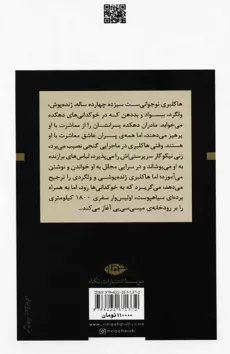 هاکلبری نوجوانی‌ست سیزده چهارده ساله، ژنده‌پوش،
ولگرد، بیسواد و بددهن که در خوکدانی‌های دهکده
می‌خوابد. مادران دهکده پسرانشان را از معاشرت با او
پرهیز می‌دهند، اما همه‌ی پسران عاشق معاشرت با او
هستند. وقتی هاکلبری در ماجرایی گنجی نصیب می‌برد،
زنی نیکوکار سرپرستی‌اش را می‌پذیرد، لباس‌های برازنده
به او می‌پوشاند و در سرایی مجلل به او خواندن و نوشتن
می‌آموزد؛ اما هاکلبری ژنده‌پوشی و ولگردی را ترجیح
می‌دهد، می‌گریزد که به خوکدانی‌ها رود، اما به همراه
برده‌ای سیاهپوست، اولیس‌وار سفری ۱۸۰۰ کیلومتری
را بر رودخانه‌ی می‌سی‌سی‌پی آغاز می‌کند.
مؤسسه انتشارات نگاه
۱۱۰۰۰۰ تومان
www.negahpub.com